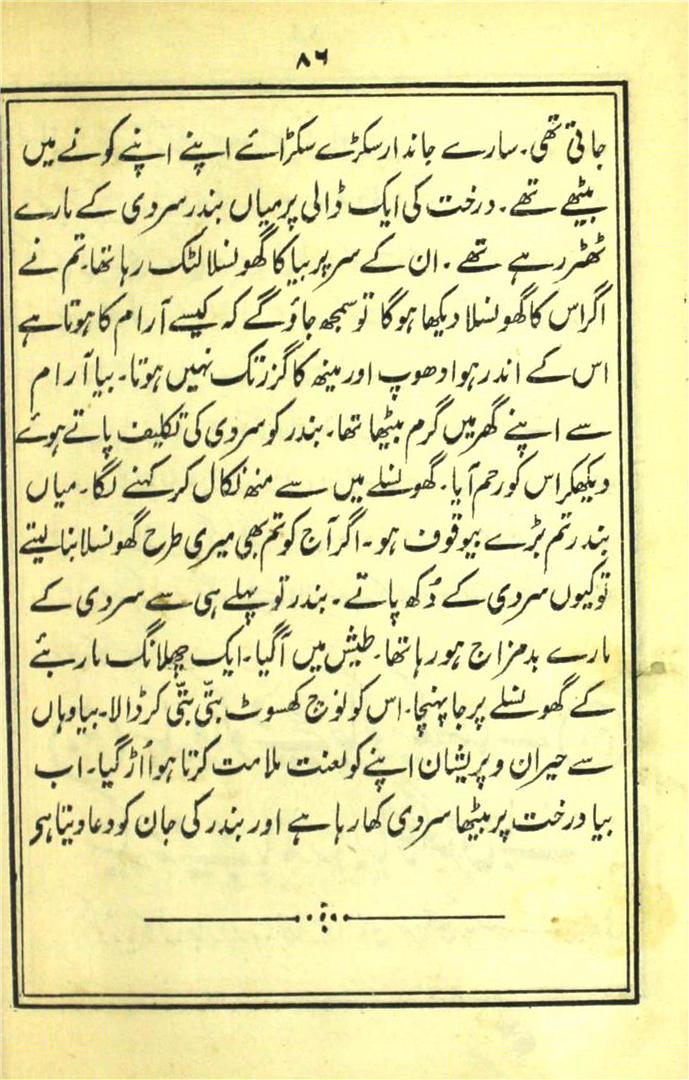 ۸۶
جاتی تھی۔ سارے جاندار سکڑے سکڑائے اپنے اپنے کونے میں
بیٹھے تھے۔ درخت کی ایک ڈالی پر میاں بندر سردی کے مارے
ٹھٹر رہے تھے۔ ان کے سر پر بیا کا گھونسلا لٹک رہا تھا۔ تم نے
اگر اس کا گھونسلا دیکھا ہوگا تو سمجھ جاؤ گے کہ کیسے آرام کا ہوتا ہے
اس کے اندر ہوا دھوپ اور مینھ کا گزر تک نہیں ہوتا۔ بیا آرام
سے اپنے گھر میں گرم بیٹھا تھا۔ بندر کو سردی کی تکلیف پاتے ہوئے
دیکھکر اس کو رحم آیا۔ گھونسلے میں سے منھ نکال کر کہنے لگا۔ میاں
بندر تم بڑے بیوقوف ہو۔ اگر آج کو تم بھی میری طرح گھونسلا بنا لیتے
تو کیوں سردی کے دُکھ پاتے۔ بندر تو پہلے ہی سے سردی کے
مارے بدمزاج ہو رہا تھا۔ طیش میں آگیا۔ ایک چھلانگ مار بئے
کے گھونسلے پر جا پہنچا۔ اس کو نوچ کھسوٹ بتّی بتّی کر ڈالا۔ بیا وہاں
سے حیران و پریشان اپنے کو لعنت ملامت کرتا ہوا اُڑ گیا۔ اب
بیا درخت پر بیٹھا سردی کھا رہا ہے اور بندر کی جان کو دعا دیتا ہی